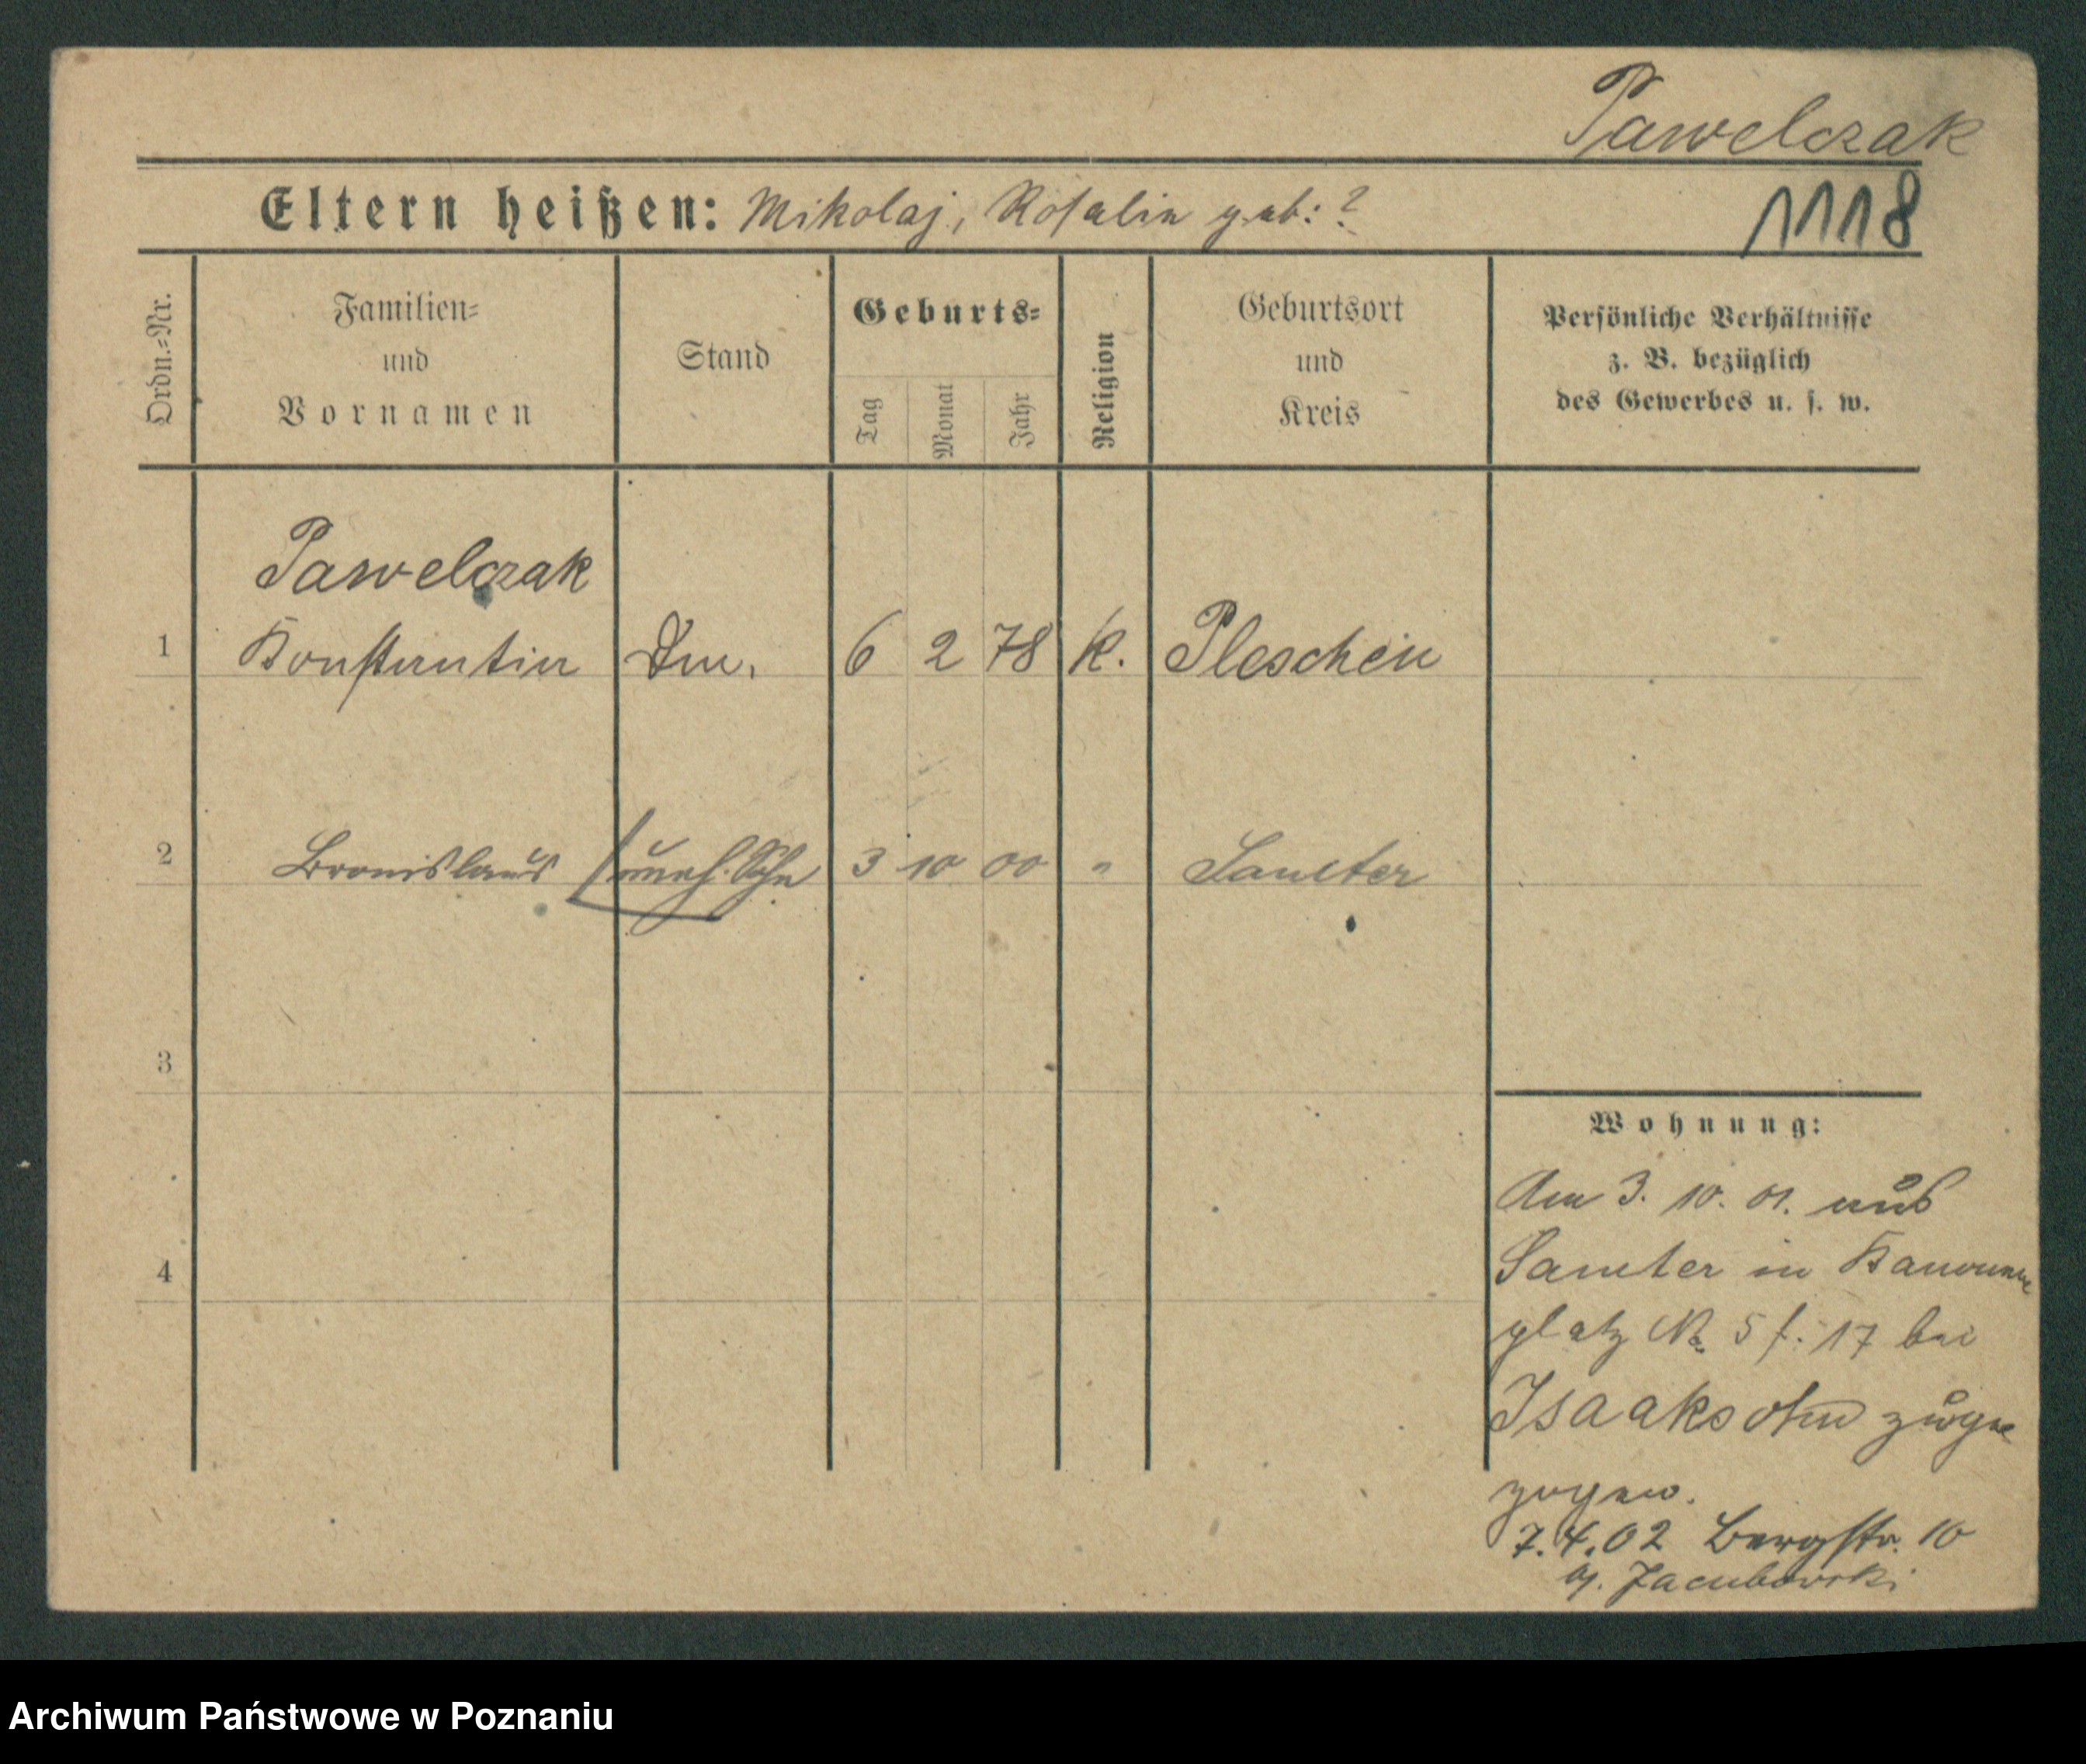 Pawelczak
Eltern heißen: Mikolaj, Rosalia geb: ?
1118
Ordn.-Nr.
Familien-
und
Vornamen
Stand
Geburts-
Tag
Monat
Jahr
Religion
Geburtsort
und
Kreis
Persönliche Verhältnisse
z. B. bezüglich
des Gewerbes u. s. w.
Pawelczak
1 Konstantin 6 2 78 k. Pleschen
2 Bronislaus unehl. Sohn 3 10 00 " Samter
3
4
Wohnung:
Am 3. 10. 01. aus
Samter in Kanonen
platz No 5 f. 17 bei
Isaaksohn
zogen.
7.4.02 Bergstr. 10
b/. Jacubowski
Archiwum Państwowe w Poznaniu